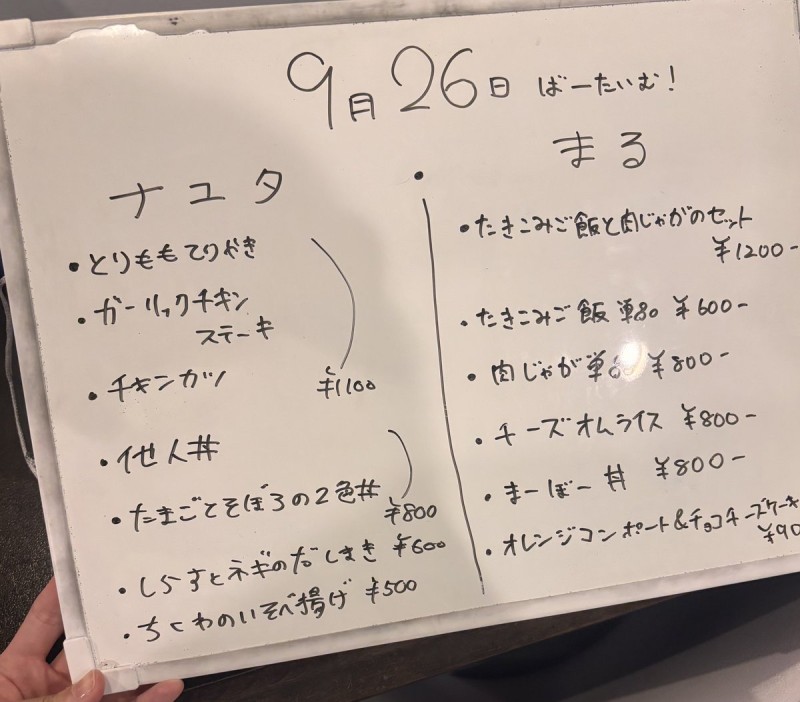 9月26日 ばーたいむ!
ナユタ
・とりももてりやき
・ガーリックチキン
ステーキ
・チキンカツ
¥1100
・他人丼
・たまごとそぼろの2色丼
¥800
・しらすとネギのだしまき ¥600
・ちくわのいそべ揚げ ¥500
・
まる
・たきこみご飯と肉じゃがのセット
¥1200-
・たきこみご飯 単品 ¥600-
・肉じゃが 単品 ¥800-
・チーズオムライス ¥800-
・まーぼー丼 ¥800-
・オレンジコンポート&チョコチーズケーキ
¥90